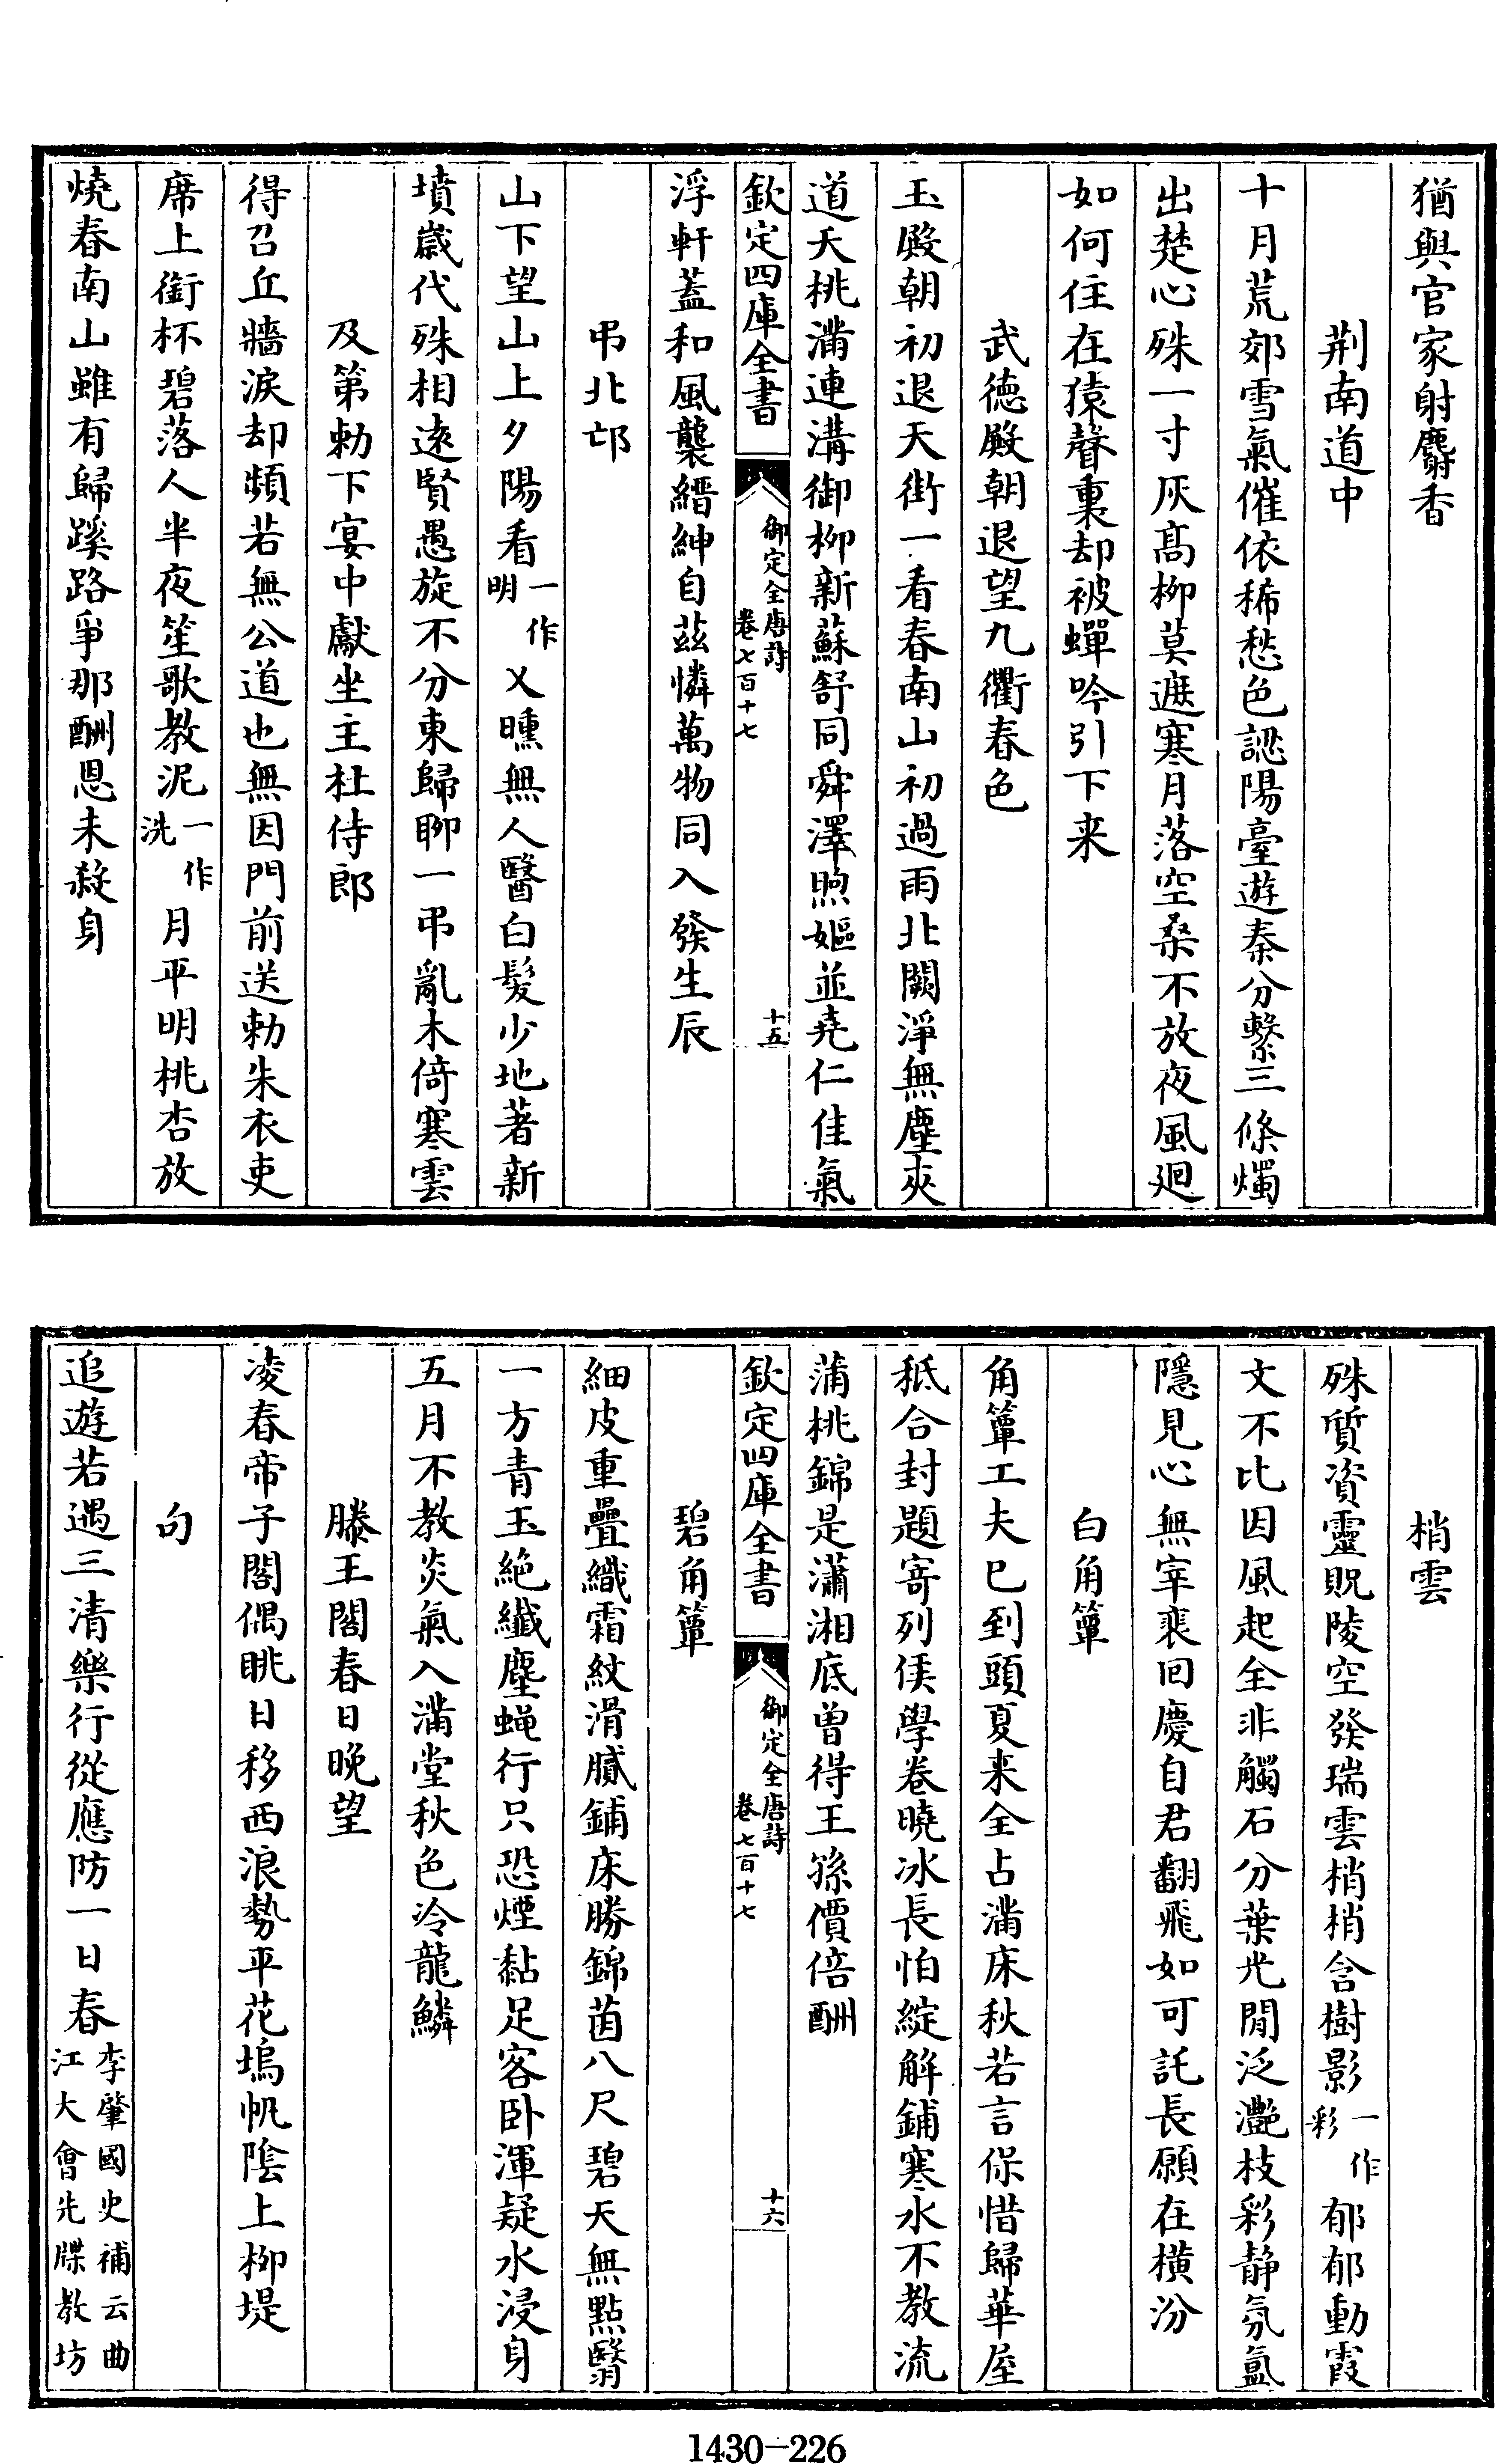 猶與官家射麝香
荆南道中
十月荒郊雪氣催依稀愁色認陽臺遊秦分繫三條燭
出楚心殊一寸灰髙柳莫遮寒月落空桑不放夜風廻
如何住在猿聲裏却被蟬吟引下来
武徳殿朝退望九衢春色
玉殿朝初退天街一看春南山初過雨北闕淨無塵夾
道夭桃滿連溝御柳新蘇舒同舜澤煦嫗並堯仁佳氣
欽定四庫全書
御定全唐詩
卷七百十七
十五
浮軒葢和風襲縉紳自茲憐萬物同入發生辰
弔北邙
山下望山上夕陽看一作明又曛無人醫白髮少地著新
墳歳代殊相遠賢愚旋不分東歸聊一弔亂木倚寒雲
及第勅下宴中獻坐主杜侍郎
得召丘牆淚却頻若無公道也無因門前送勅朱衣吏
席上銜杯碧落人半夜笙歌教泥一作洗月平明桃杏放
燒春南山雖有歸蹊路爭那酬恩未殺身
梢雲
殊質資靈貺陵空發瑞雲梢梢含樹影一作彩郁郁動霞
文不比因風起全非觸石分葉光閒泛灧枝彩静氛氳
隱見心無宰裵回慶自君翻飛如可託長願在橫汾
白角簟
角簟工夫已到頭夏来全占滿床秋若言保惜歸華屋
秪合封題寄列侯學卷曉冰長怕綻解鋪寒水不教流
蒲桃錦是瀟湘底曽得王孫價倍酬
欽定四庫全書
御定全唐詩
卷七百十七
十六
碧角簟
細皮重疊織霜紋滑膩鋪床勝錦茵八尺碧天無點翳
一方青玉絶纖塵蝇行只恐煙黏足客卧渾疑水浸身
五月不教炎氣入滿堂秋色冷龍鱗
滕王閣春日晚望
凌春帝子閣偶眺日移西浪勢平花塢帆隂上栁堤
句
追遊若遇三清樂行從應防一日春李肇國史補云曲
江大會先牒教坊
1430-226